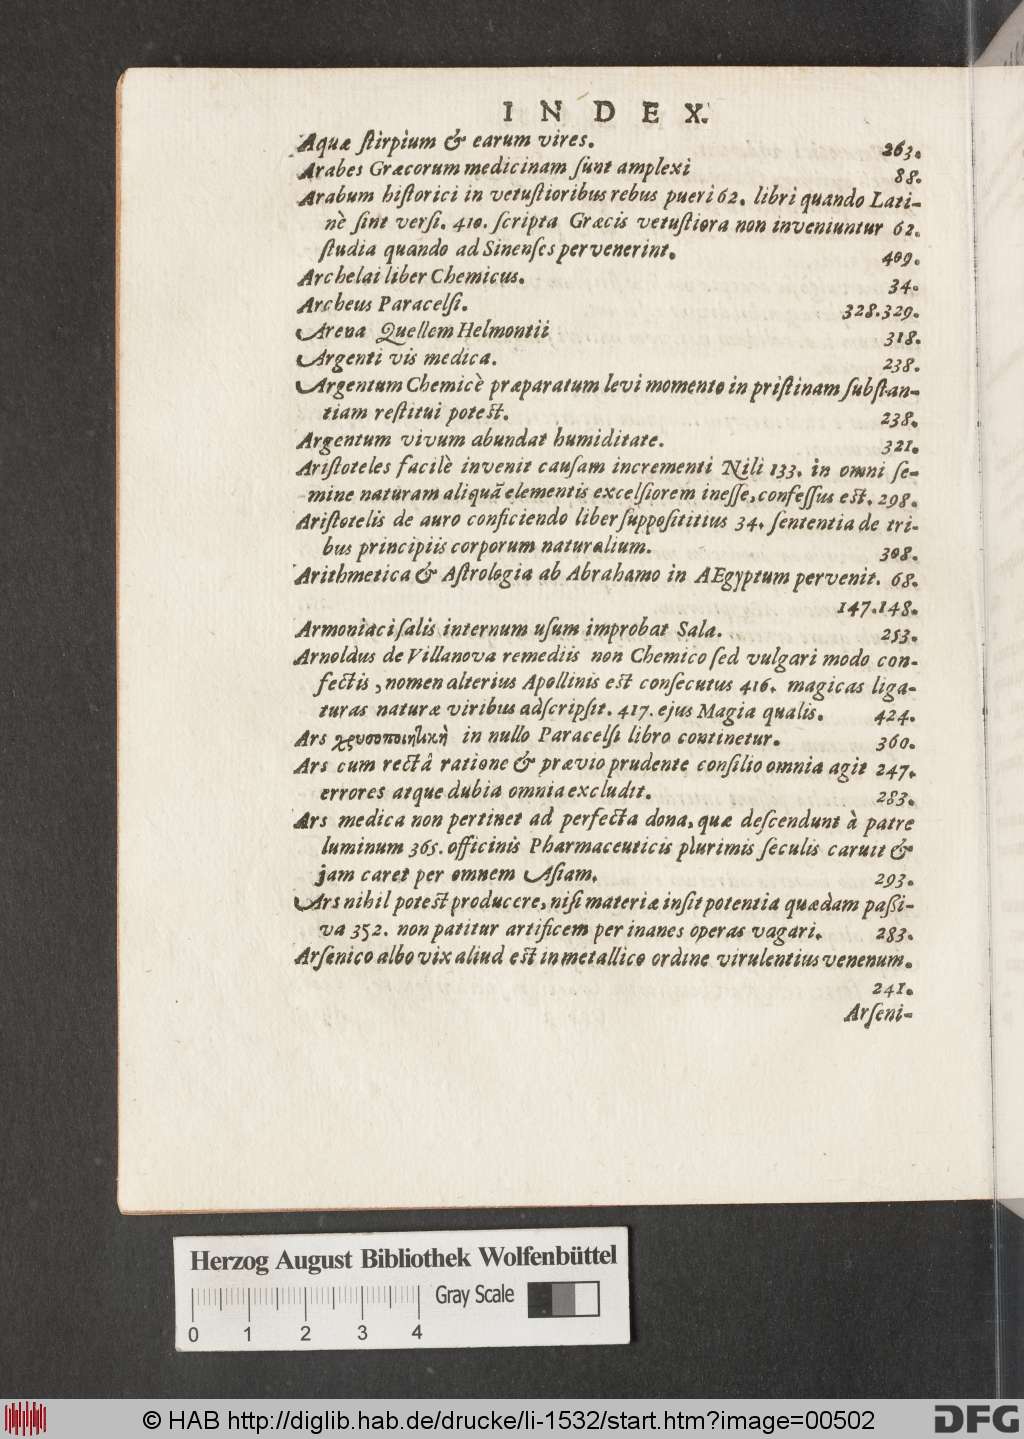 INDEX.
Aquæ ſtirpium & earum vires. 263.
Arabes Græcorum medicinam ſunt amplexi 88.
Arabum hiſtorici in vetuſtioribus rebus pueri 62. libri quando Lati-
nè ſint verſi. 410. ſcripta Græcis vetuſtiora non inveniuntur 62.
ſtudia quando ad Sinenſes pervenerint. 409.
Archelai liber Chemicus. 34.
Archeus Paracelſi. 328.329.
Arena Quellem Helmontii 318.
Argenti vis medica. 238.
Argentum Chemicè præparatum levi momento in priſtinam ſubſtan-
tiam reſtitui poteſt. 238.
Argentum vivum abundat humiditate. 321.
Ariſtoteles facilè invenit cauſam incrementi Nili 133. in omni ſe-
mine naturam aliquã elementis excelſiorem ineſſe, confeſſus eſt. 298.
Ariſtotelis de auro conficiendo liber ſuppoſititius 34. ſententia de tri-
bus principiis corporum naturalium. 308.
Arithmetica & Aſtrologia ab Abrahamo in AEgyptum pervenit. 68.
147.148.
Armoniaci ſalis internum uſum improbat Sala. 253.
Arnoldus de Villanova remediis non Chemico ſed vulgari modo con-
fectis, nomen alterius Apollinis eſt conſecutus 416. magicas liga-
turas naturæ viribus adſcripſit. 417. ejus Magia qualis. 424.
Ars χρυσοποιητικὴ in nullo Paracelſi libro continetur. 360.
Ars cum rectâ ratione & prævio prudente conſilio omnia agit 247.
errores atque dubia omnia excludit. 283.
Ars medica non pertinet ad perfecta dona, quæ deſcendunt à patre
luminum 365. officinis Pharmaceuticis plurimis ſeculis caruit &
jam caret per omnem Aſiam. 293.
Ars nihil poteſt producere, niſi materiæ inſit potentia quædam paßi-
va 352. non patitur artificem per inanes operas vagari. 283.
Arſenico albo vix aliud eſt in metallico ordine virulentius venenum.
241.
Arſeni-
Herzog August Bibliothek Wolfenbüttel
Gray Scale
0 1 2 3 4
© HAB http://diglib.hab.de/drucke/li-1532/start.htm?image=00502
DFG